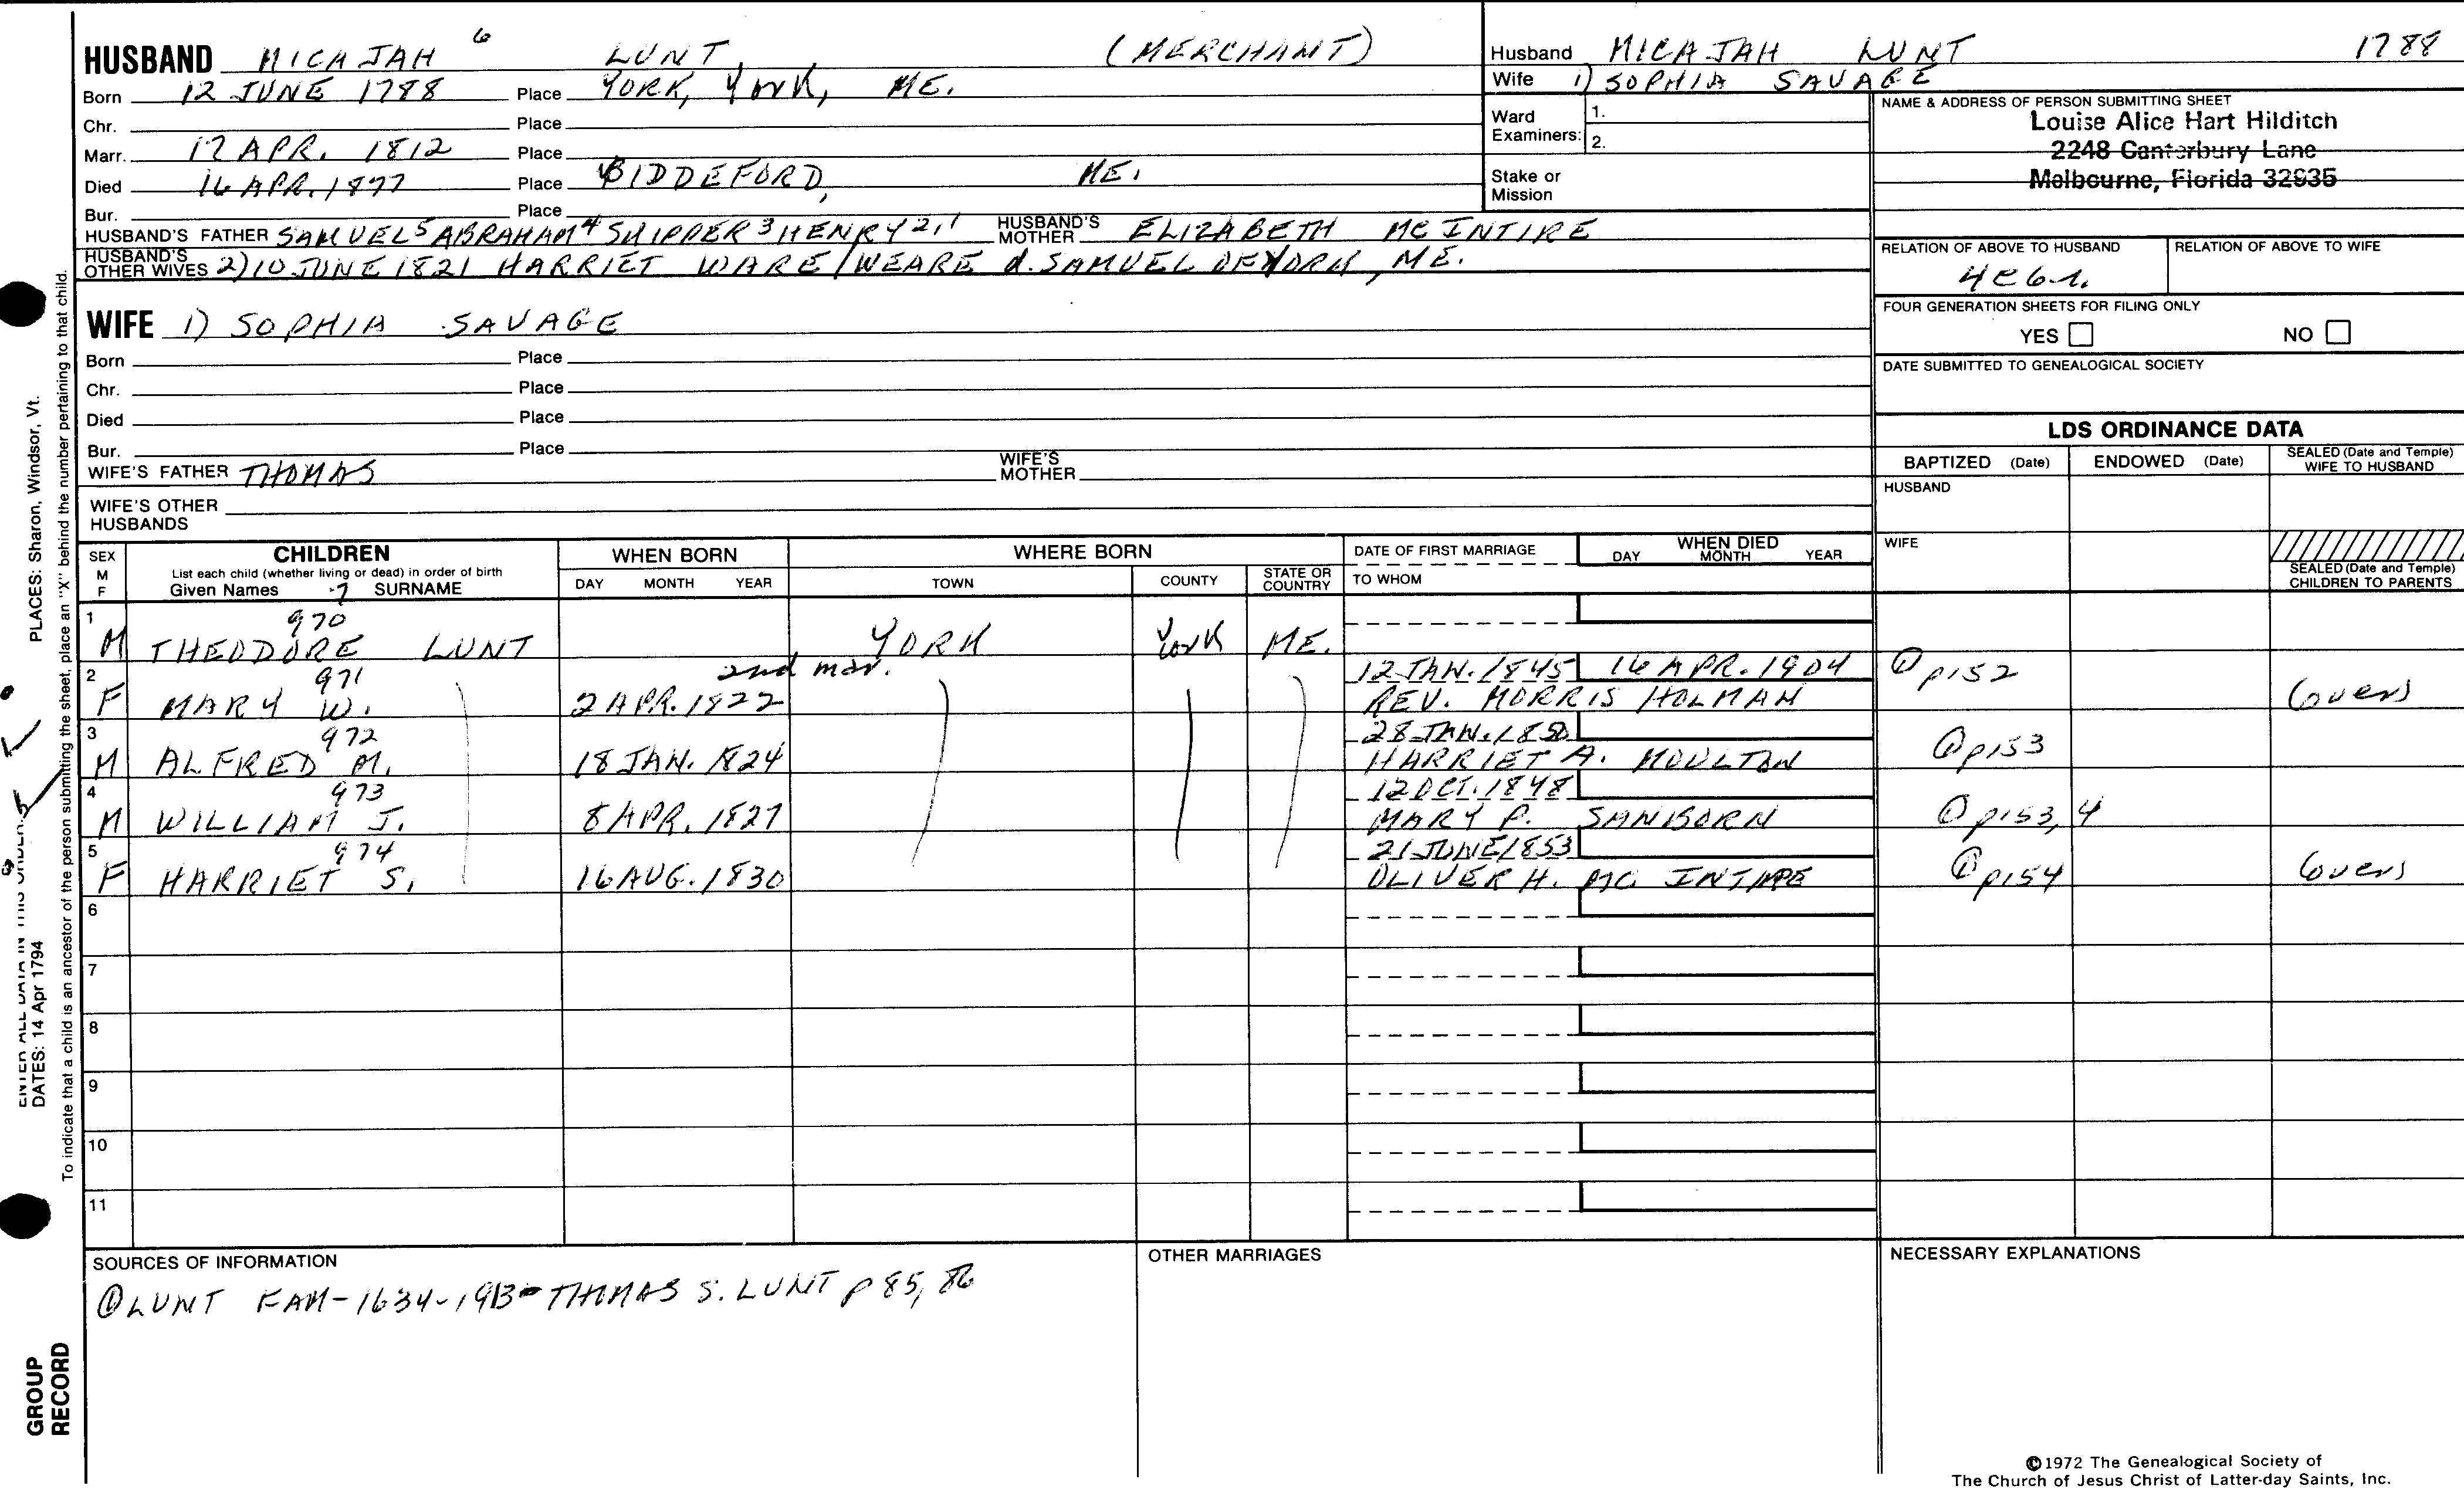 HUSBAND MICAJAH 6 LUNT (MERCHANT)
Born 12 JUNE 1788 Place YORK, York, ME.
Chr. Place
Marr. 17 APR. 1812 Place
Died 16 APR. 1877 Place BIDDEFORD, ME.
Bur. Place
HUSBAND'S FATHER SAMUEL 5 ABRAHAM 4 SKIPPER 3 HENRY 2,1 HUSBAND'S MOTHER ELIZABETH MC INTIRE
HUSBAND'S OTHER WIVES 2) 10 JUNE 1821 HARRIET WARE/WEARE d. SAMUEL OF YORK, ME.
WIFE 1) SOPHIA SAVAGE
Born Place
Chr. Place
Died Place
Bur. Place
WIFE'S FATHER THOMAS WIFE'S MOTHER
WIFE'S OTHER HUSBANDS
Husband MICAJAH LUNT 1788
Wife 1) SOPHIA SAVAGE
Ward Examiners: 1.
2.
Stake or Mission
NAME & ADDRESS OF PERSON SUBMITTING SHEET
Louise Alice Hart Hilditch
2248 Canterbury Lane
Melbourne, Florida 32935
RELATION OF ABOVE TO HUSBAND RELATION OF ABOVE TO WIFE
4c6r.
FOUR GENERATION SHEETS FOR FILING ONLY
YES NO
DATE SUBMITTED TO GENEALOGICAL SOCIETY
LDS ORDINANCE DATA
BAPTIZED (Date) ENDOWED (Date) SEALED (Date and Temple) WIFE TO HUSBAND
HUSBAND
WIFE
SEALED (Date and Temple) CHILDREN TO PARENTS
SEX M F
CHILDREN
List each child (whether living or dead) in order of birth
Given Names 7 SURNAME
WHEN BORN
DAY MONTH YEAR
WHERE BORN
TOWN COUNTY STATE OR COUNTRY
DATE OF FIRST MARRIAGE
TO WHOM
WHEN DIED
DAY MONTH YEAR
1 970
M THEODORE LUNT YORK York ME.
2nd mar.
2 971 12 JAN. 1845 16 APR. 1904 ① p152
F MARY W. 2 APR. 1822 REV. MORRIS HOLMAN (over)
3 972 28 JAN. 1850
M ALFRED M. 18 JAN. 1824 HARRIET A. MOULTON ① p153
4 973 12 OCT. 1848
M WILLIAM J. 8 APR. 1827 MARY P. SANBORN ① p153, 4
5 974 21 JUNE 1853
F HARRIET S. 16 AUG. 1830 OLIVER H. MC INTIRE ① p154 (over)
6
7
8
9
10
11
SOURCES OF INFORMATION
① LUNT FAM-1634-1913-THOMAS S. LUNT p 85, 86
OTHER MARRIAGES
NECESSARY EXPLANATIONS
©1972 The Genealogical Society of
The Church of Jesus Christ of Latter-day Saints, Inc.
PLACES: Sharon, Windsor, Vt.
ENTER ALL DATA IN THIS ORDER:
DATES: 14 Apr 1794
To indicate that a child is an ancestor of the person submitting the sheet, place an "X" behind the number pertaining to that child.
GROUP
RECORD